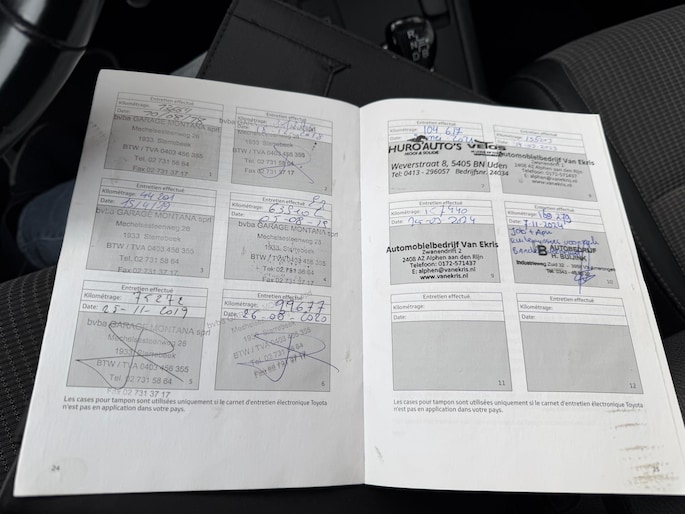 Entretien effectué
Kilométrage:
Date:
bvba GARAGE MONTANA sprl
Mechelsesteenweg 28
1933 Sterrebeek
BTW / TVA 0403 456 355
Tel 02 731 58 64
Fax 02 731 37 17
1
Entretien effectué
Kilométrage:
Date:
Mechelsesteenweg 28
1933 Sterrebeek
BTW / TVA 0403 456 355
Tel 02 731 58 64
Fax 02 731 37 17
2
Entretien effectué
Kilométrage:
Date: 15/4/19
bvba GARAGE MONTANA sprl
Mechelsesteenweg 28
1933 Sterrebeek
BTW / TVA 0403 456 355
Tel 02 731 58 64
Fax 02 731 37 17
3
Entretien effectué
Kilométrage:
Date: 05-08-19
bvba GARAGE MONTANA sprl
Mechelsesteenweg 28
1933 Sterrebeek
BTW / TVA 0403 456 355
Tel 02 731 58 64
Fax 02 731 37 17
4
Entretien effectué
Kilométrage: 79272
Date: 25-11-2019
bvba GARAGE MONTANA sprl
Mechelsesteenweg 28
1933 Sterrebeek
BTW / TVA 0403 456 355
Tel 02 731 58 64
Fax 02 731 37 17
5
Entretien effectué
Kilométrage: 99677
Date: 26-08-2020
bvba GARAGE MONTANA sprl
Mechelsesteenweg 28
1933 Sterrebeek
BTW / TVA 0403 456 355
Tel 02 731 58 64
Fax 02 731 37 17
6
Les cases pour tampon sont utilisées uniquement si le carnet d'entretien électronique Toyota
n'est pas en application dans votre pays.
24
Entretien effectué
Kilométrage: 104.617
Date:
HURO AUTO'S
Weverstraat 8, 5405 BN Uden
Tel: 0413 - 296057 Bedrijfsnr. 24034
7
Entretien effectué
Kilométrage:
Date:
Automobielbedrijf Van Ekris
Zwanendrift 2
2408 AZ Alphen aan den Rijn
Telefoon: 0172-571437
E: alphen@vanekris.nl
www.vanekris.nl
8
Entretien effectué
Kilométrage:
Date:
Automobielbedrijf Van Ekris
Zwanendrift 2
2408 AZ Alphen aan den Rijn
Telefoon: 0172-571437
E: alphen@vanekris.nl
www.vanekris.nl
9
Entretien effectué
Kilométrage:
Date: 7-11-2024
AUTOBEDRIJF
10
Entretien effectué
Kilométrage:
Date:
11
Entretien effectué
Kilométrage:
Date:
12
Les cases pour tampon sont utilisées uniquement si le carnet d'entretien électronique Toyota
n'est pas en application dans votre pays.
25
R
N
D
B